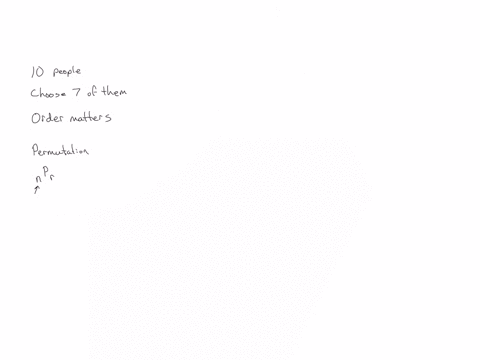 10 people
Choose 7 of them
Order matters
Permutation
nPr
↑